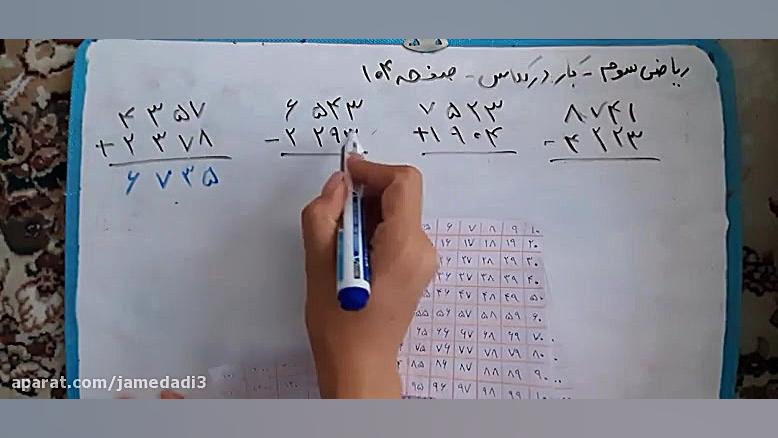 ریاضی سوم - کار در کلاس - صفحه ۱۰۴
۴۳۵۷ ۶۵۴۳ ۷۵۲۳ ۸۷۴۱
+۲۳۷۸ -۲۲۹ +۱۹۰۴ -۴۲۲۳
۶۷۳۵
۶ ۷ ۸ ۹ ۱۰
۱۶ ۱۷ ۱۸ ۱۹ ۲۰
۲۶ ۲۷ ۲۸ ۲۹ ۳۰
۳۶ ۳۷ ۳۸ ۳۹ ۴۰
۴۶ ۴۷ ۴۸ ۴۹ ۵۰
۵۵ ۵۶ ۵۷ ۵۸ ۵۹ ۶۰
۶۵ ۶۶ ۶۷ ۶۸ ۶۹ ۷۰
۷۵ ۷۶ ۷۷ ۷۸ ۷۹ ۸۰
۸۵ ۸۶ ۸۷ ۸۸ ۸۹ ۹۰
۹۵ ۹۶ ۹۷ ۹۸ ۹۹ ۱۰۰
aparat.com/jamedadi3